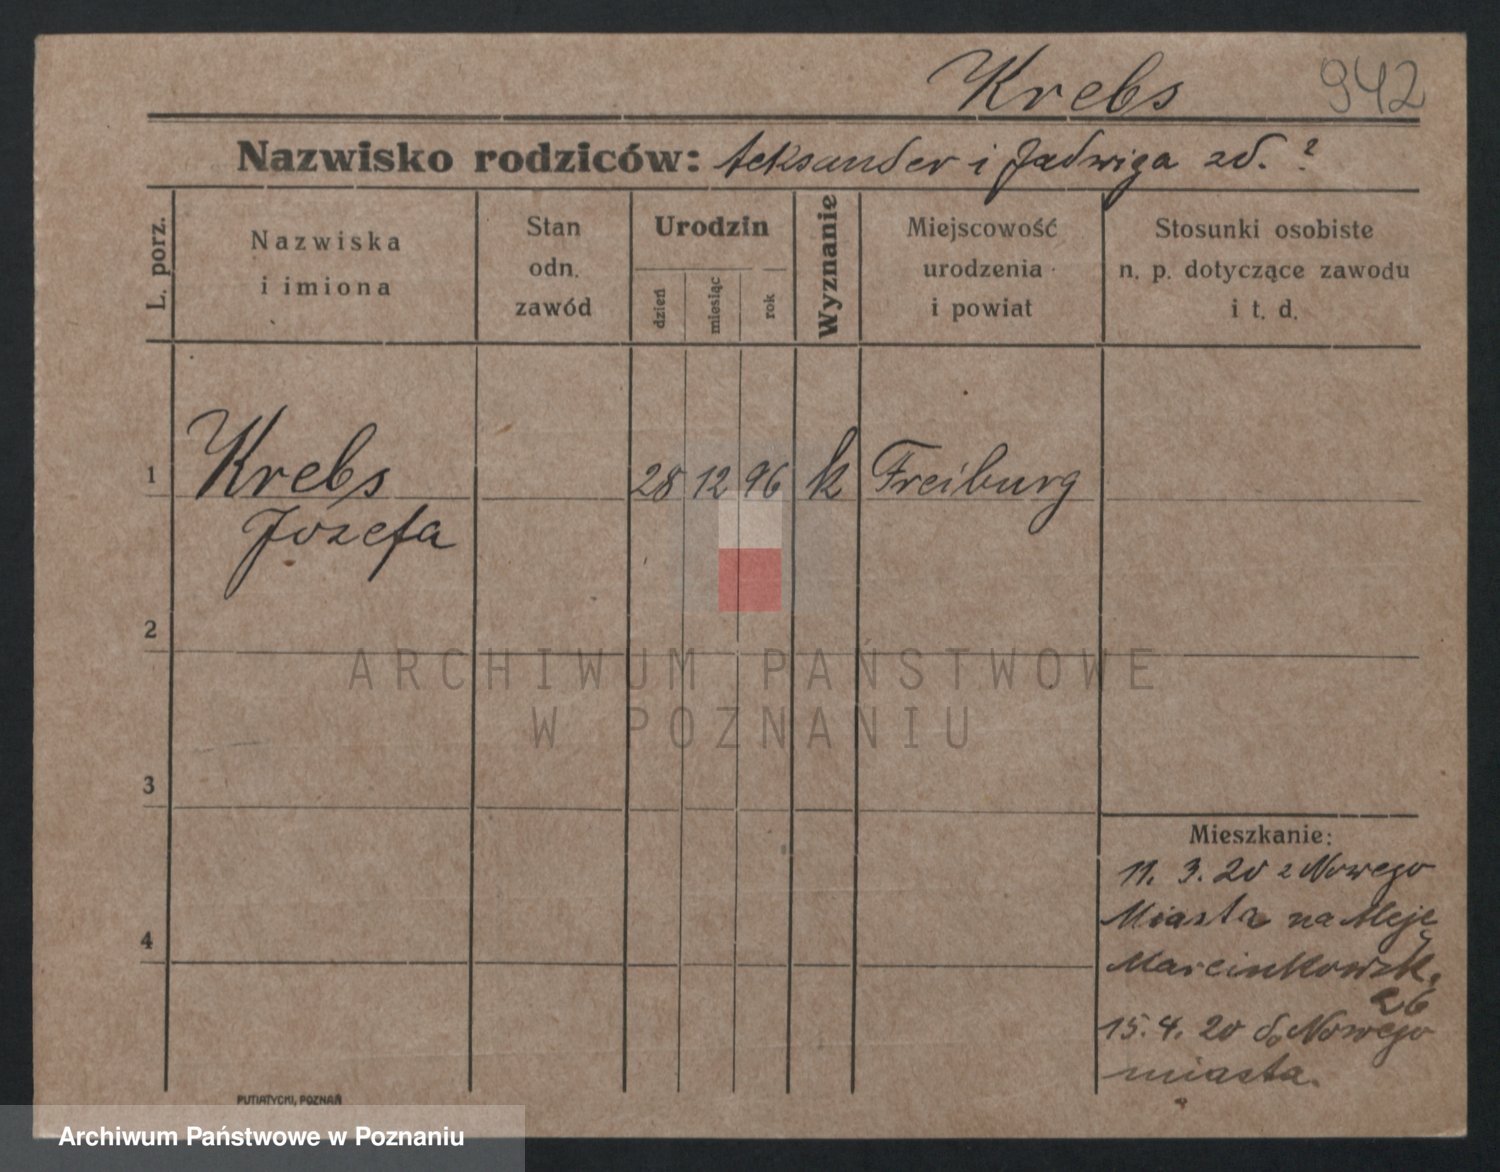 Krebs 942
Nazwisko rodziców: Aleksander i Jadwiga zd. ?
L. porz.
Nazwiska
i imiona
Stan
odn.
zawód
Urodzin
dzień
miesiąc
rok
Wyznanie
Miejscowość
urodzenia
i powiat
Stosunki osobiste
n. p. dotyczące zawodu
i t. d.
1 Krebs 28 12 96 k Freiburg
Józefa
2
3
4
Mieszkanie:
11. 3. 20 z Nowego
Miasta na Aleje
Marcinkowsk.
26
15. 4. 20 do Nowego
miasta.
PUTIATYCKI, POZNAŃ
ARCHIWUM PAŃSTWOWE
W POZNANIU
Archiwum Państwowe w Poznaniu